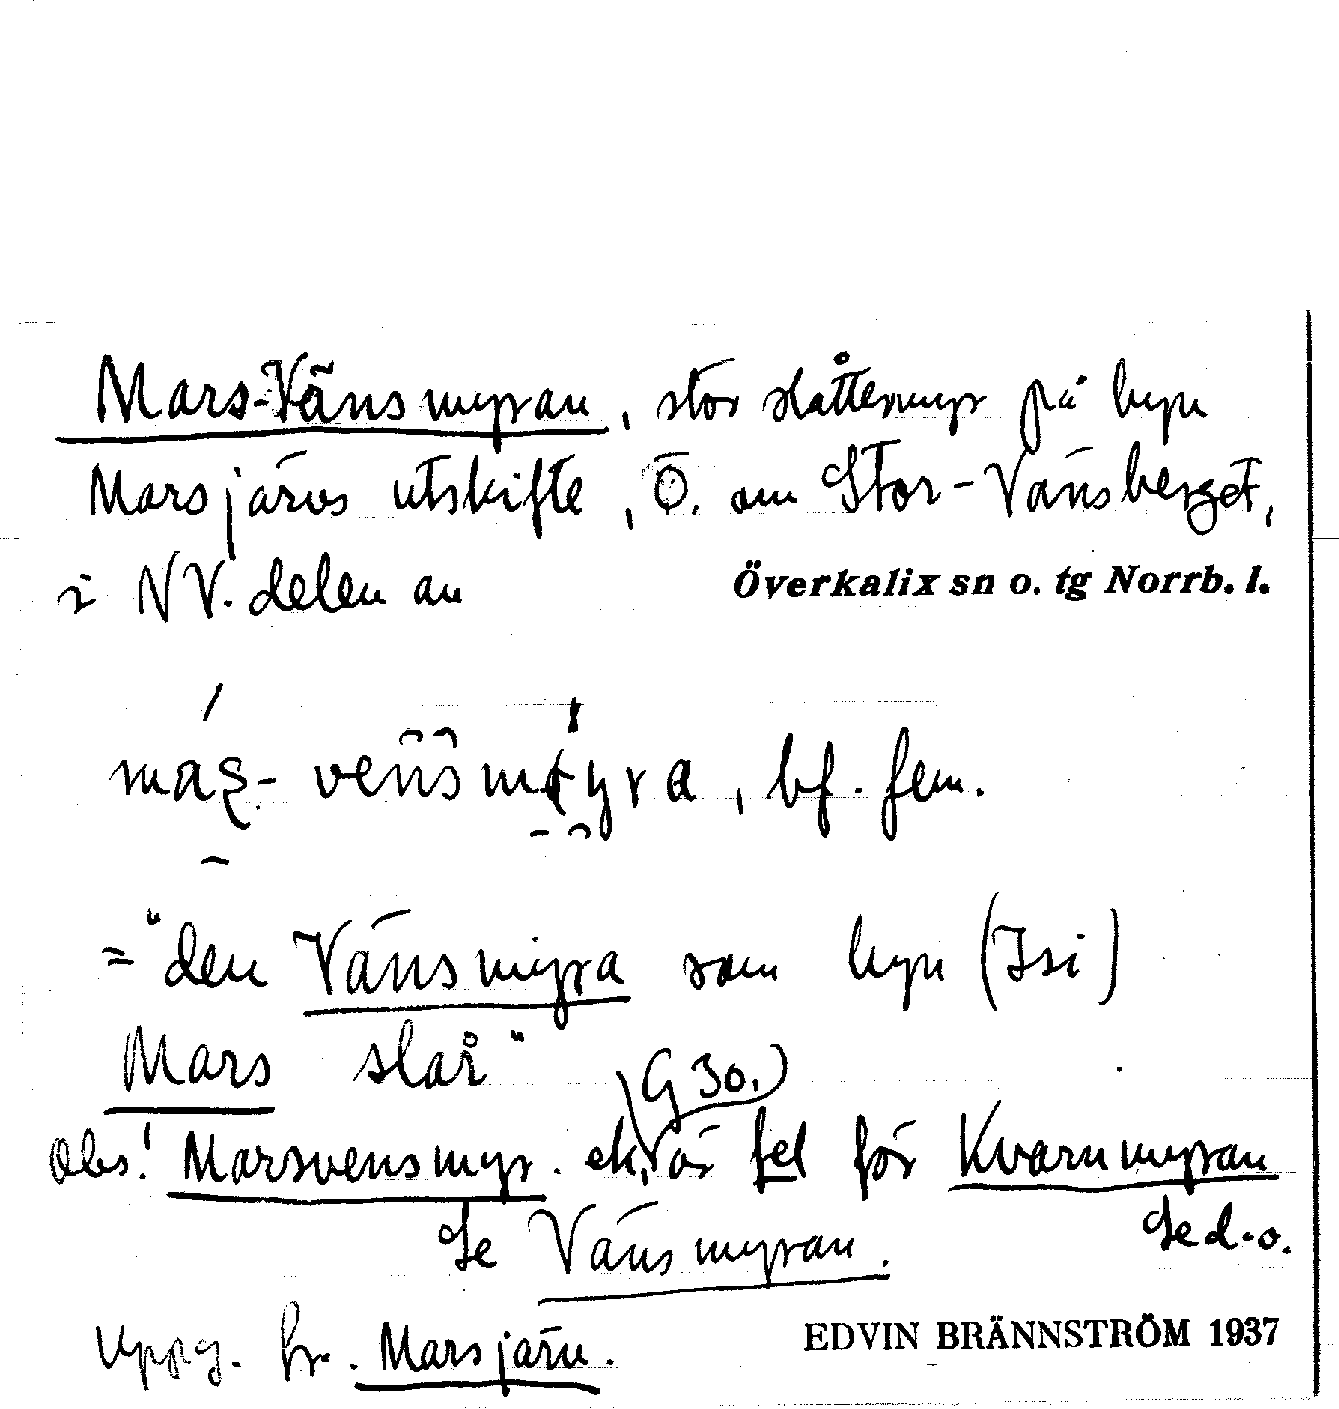 Mars-Vänsmyran, stor slåttermyr på byn
Marsjärvs utskifte, Ö. om Stor-Vänsberget,
i NV. delen av
Överkalix sn o. tg Norrb. l.
bf. fem.
="den Vänsmyra som byn (Isi)
Mars slår"
(G 30.)
Obs! Marsvensmyr. ek. är fel för Kvarnmyran
Se d.o.
Se Vänsmyran.
Uppg. fr. Marsjärv.
EDVIN BRÄNNSTRÖM 1937